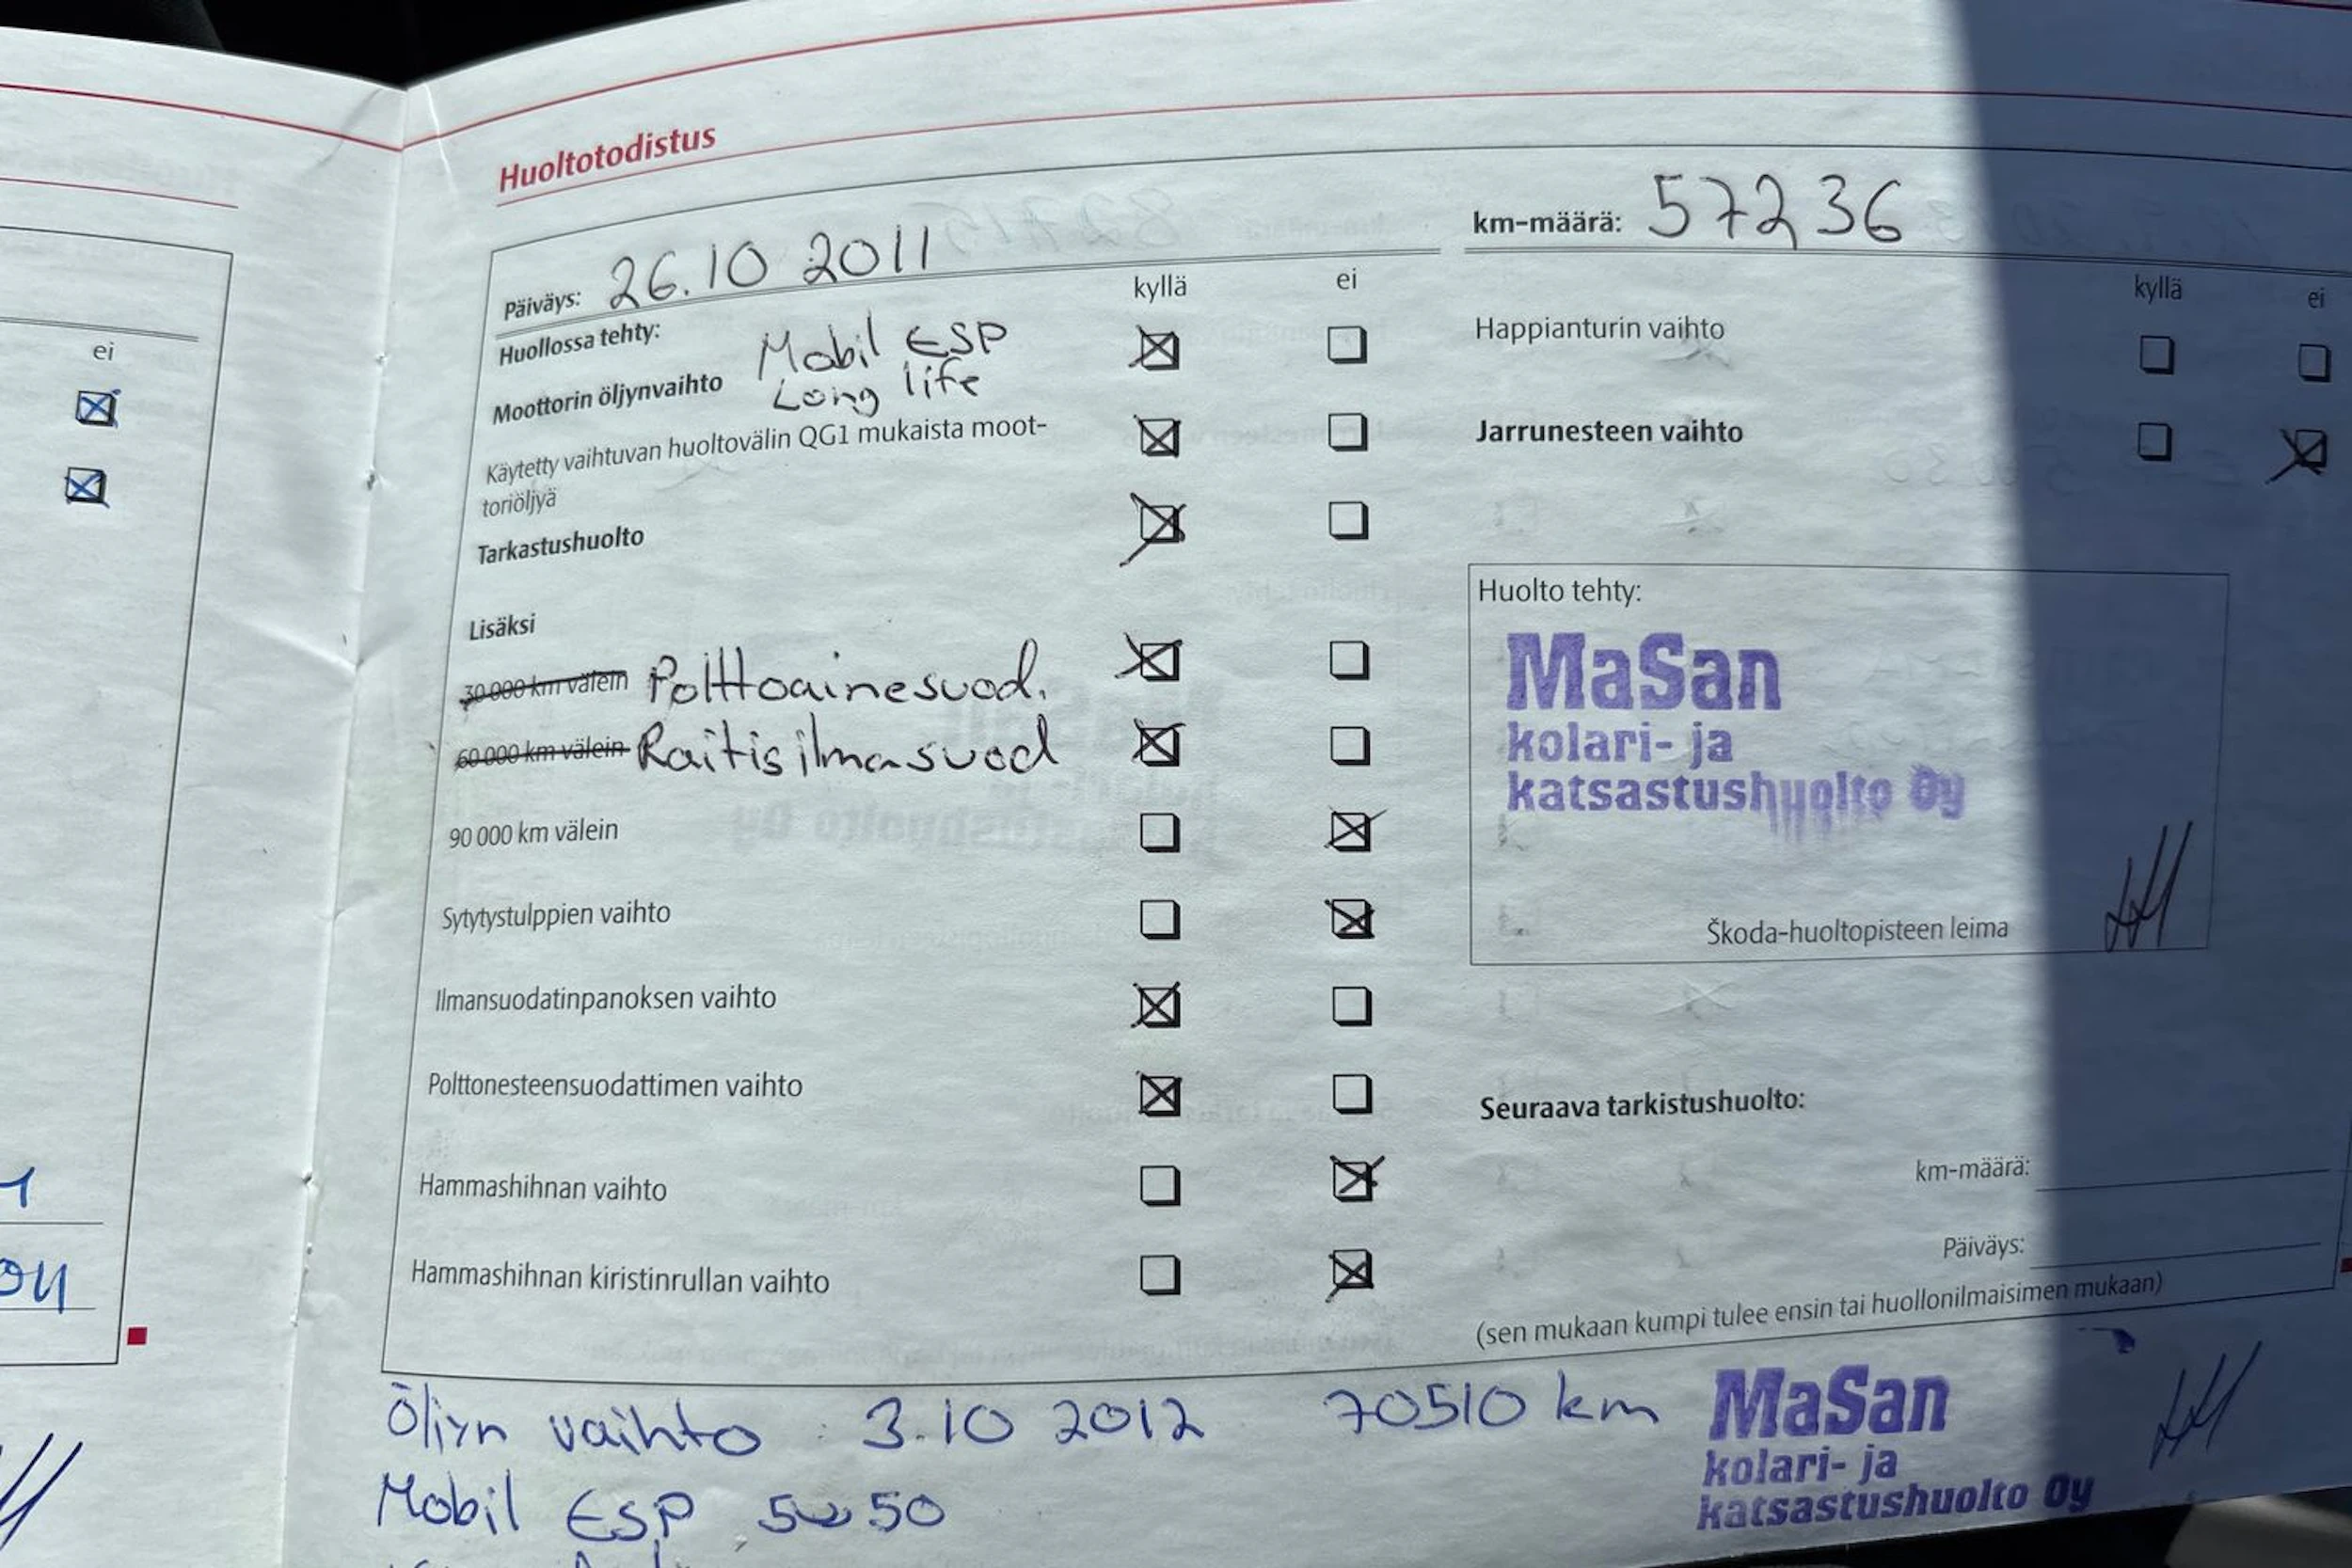 ei
Huoltotodistus
Päiväys: 26.10 2011
km-määrä: 57236
Huollossa tehty:
kyllä ei
Moottorin öljynvaihto Mobil ESP
Long life
Käytetty vaihtuvan huoltovälin QG1 mukaista moot-
toriöljyä
Tarkastushuolto
Lisäksi
30 000 km välein Polttoainesuod.
60 000 km välein Raitisilmasuod
90 000 km välein
Sytytystulppien vaihto
Ilmansuodatinpanoksen vaihto
Polttonesteensuodattimen vaihto
Hammashihnan vaihto
Hammashihnan kiristinrullan vaihto
kyllä ei
Happianturin vaihto
Jarrunesteen vaihto
Huolto tehty:
MaSan
kolari- ja
katsastushuolto Oy
Škoda-huoltopisteen leima
Seuraava tarkistushuolto:
km-määrä:
Päiväys:
(sen mukaan kumpi tulee ensin tai huollonilmaisimen mukaan)
Öljyn vaihto 3.10 2012 70510 km
Mobil ESP 5w50
MaSan
kolari- ja
katsastushuolto Oy